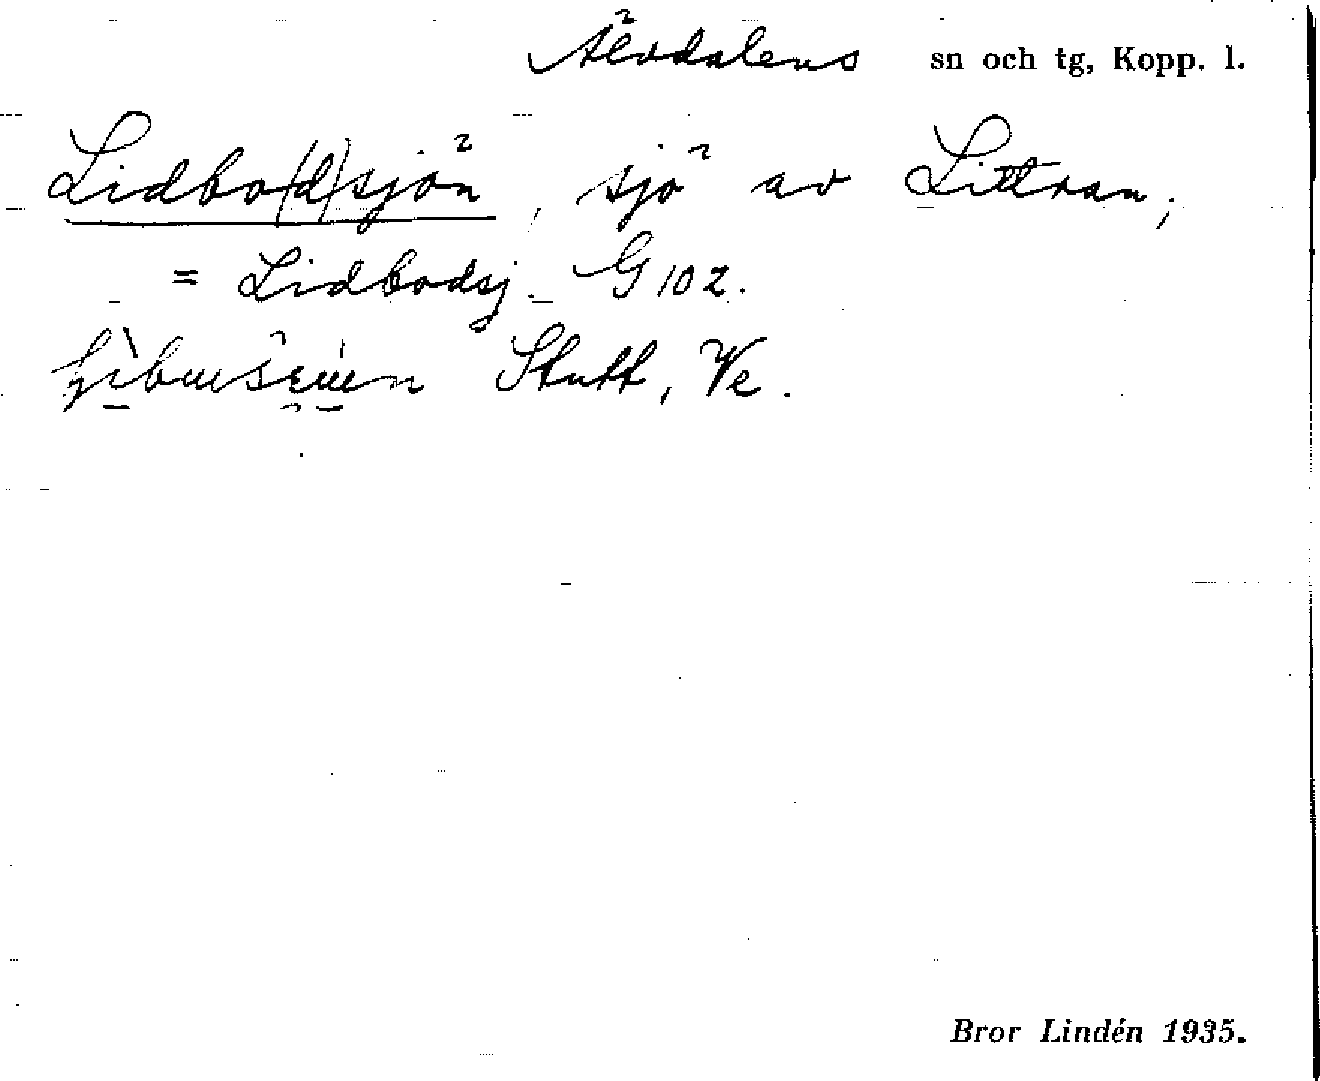 Älvdalens sn och tg, Kopp. l.
Lidbo(d)sjön, sjö av Littran;
= Lidbodsj. G 102.
Ve.
Bror Lindén 1935.